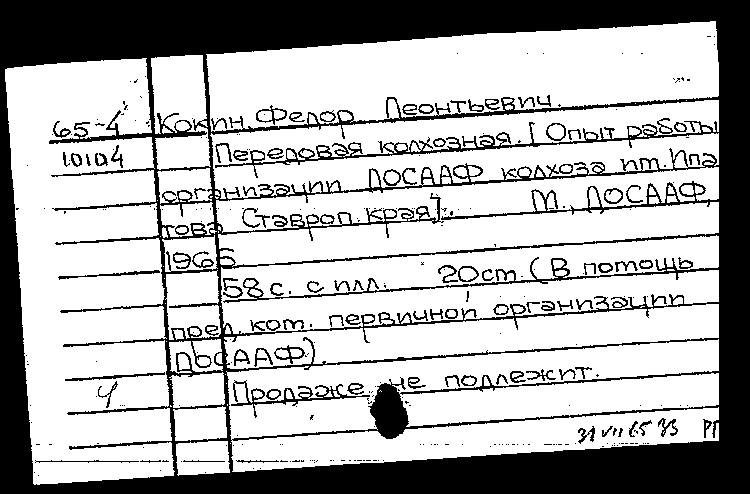 65-4 Кокин, Федор Леонтьевич.
10104 Передовая колхозная. [Опыт работы
организации ДОСААФ колхоза им. Ипа
това Ставроп. края].  М., ДОСААФ,
1965
58 с. с илл.  20 см. (В помощь
пред. ком. первичной организации
ДОСААФ).
Ч Продаже не подлежит.
31 VII 65 УЗ РП